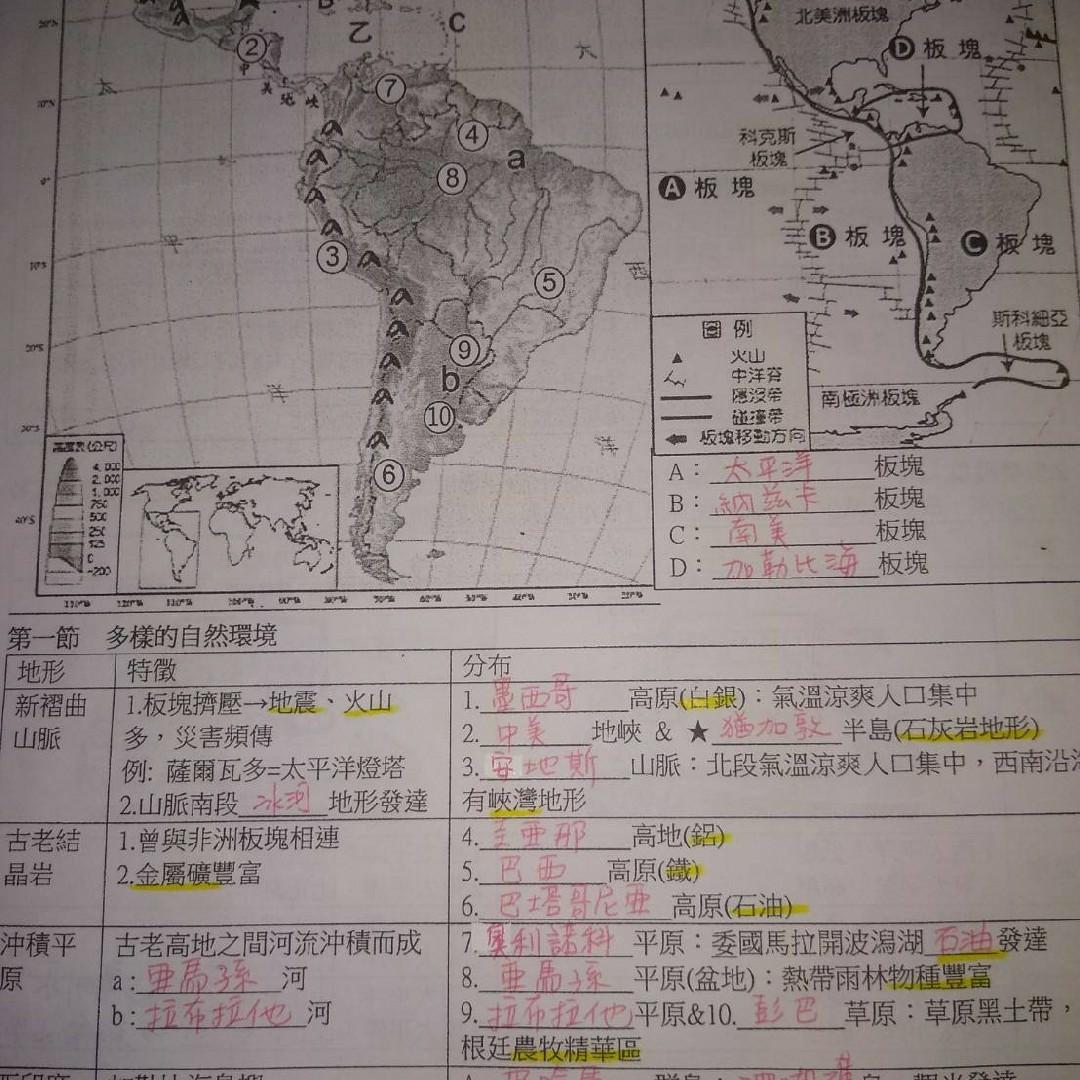 B
乙
C
②
中
美
地
峽
⑦
④
a
⑧
③
⑤
⑨
b
⑩
⑥
太
平
洋
大
西
洋
10°N
0°
10°S
20°S
30°S
40°S
高度表(公尺)
4,000
2,000
1,000
750
500
250
125
0
-200
北美洲板塊
D 板塊
科克斯
板塊
A 板塊
B 板塊
C 板塊
斯科細亞
板塊
南極洲板塊
圖例
火山
中洋脊
隱沒帶
碰撞帶
板塊移動方向
A：太平洋板塊
B：納茲卡板塊
C：南美板塊
D：加勒比海板塊
第一節 多樣的自然環境
地形 特徵 分布
新褶曲
山脈
1.板塊擠壓→地震、火山
多，災害頻傳
例: 薩爾瓦多=太平洋燈塔
2.山脈南段冰河地形發達
1.墨西哥高原(白銀)：氣溫涼爽人口集中
2.中美地峽 & ★猶加敦半島(石灰岩地形)
3.安地斯山脈：北段氣溫涼爽人口集中，西南沿
有峽灣地形
古老結
晶岩
1.曾與非洲板塊相連
2.金屬礦豐富
4.圭亞那高地(鋁)
5.巴西高原(鐵)
6.巴塔哥尼亞高原(石油)
沖積平
原
古老高地之間河流沖積而成
a:亞馬孫河
b:拉布拉他河
7.奧利諾科平原：委國馬拉開波潟湖石油發達
8.亞馬孫平原(盆地)：熱帶雨林物種豐富
9.拉布拉他平原&10.彭巴草原：草原黑土帶，
根廷農牧精華區